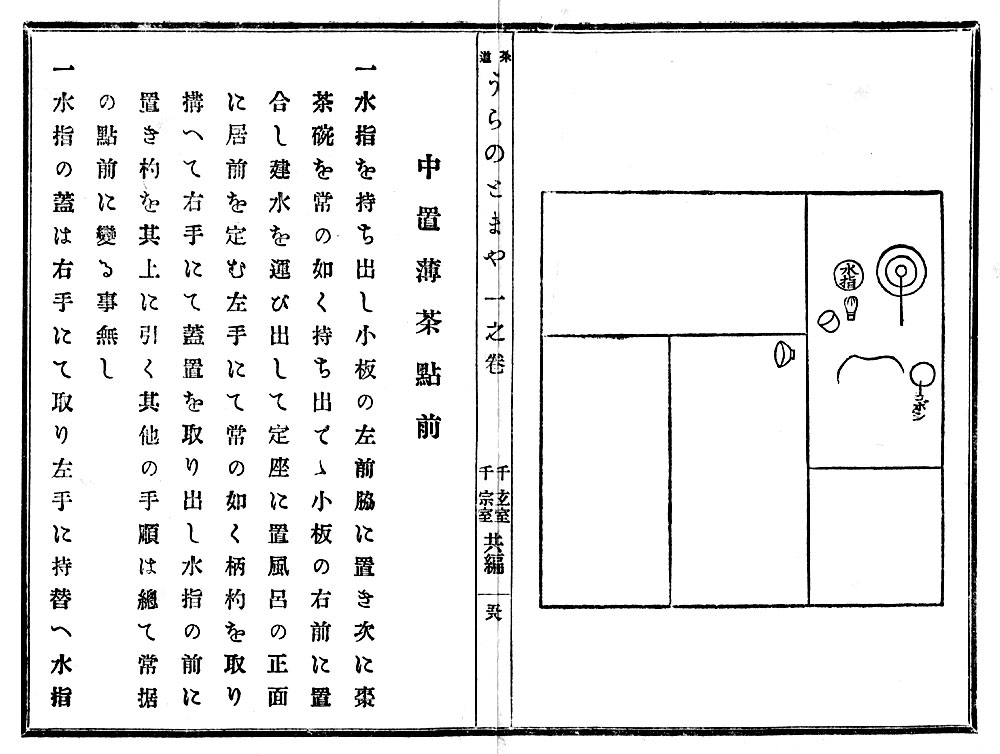 水指
コボシ
茶道
うらのとまや一之巻
千玄室
千宗室
共編
中置薄茶點前
一水指を持ち出し小板の左前脇に置き次に棗
茶碗を常の如く持ち出でゝ小板の右前に置
合し建水を運び出して定座に置風呂の正面
に居前を定む左手にて常の如く柄杓を取り
搆へて右手にて蓋置を取り出し水指の前に
置き杓を其上に引く其他の手順は總て常据
の點前に變る事無し
一水指の蓋は右手にて取り左手に持替へ水指